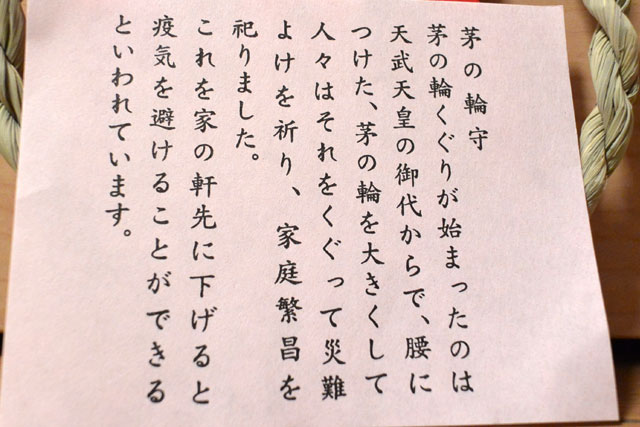 茅の輪守
茅の輪くぐりが始まったのは
天武天皇の御代からで、腰に
つけた、茅の輪を大きくして
人々はそれをくぐって災難
よけを祈り、家庭繁昌を
祀りました。
これを家の軒先に下げると
疫気を避けることができる
といわれています。